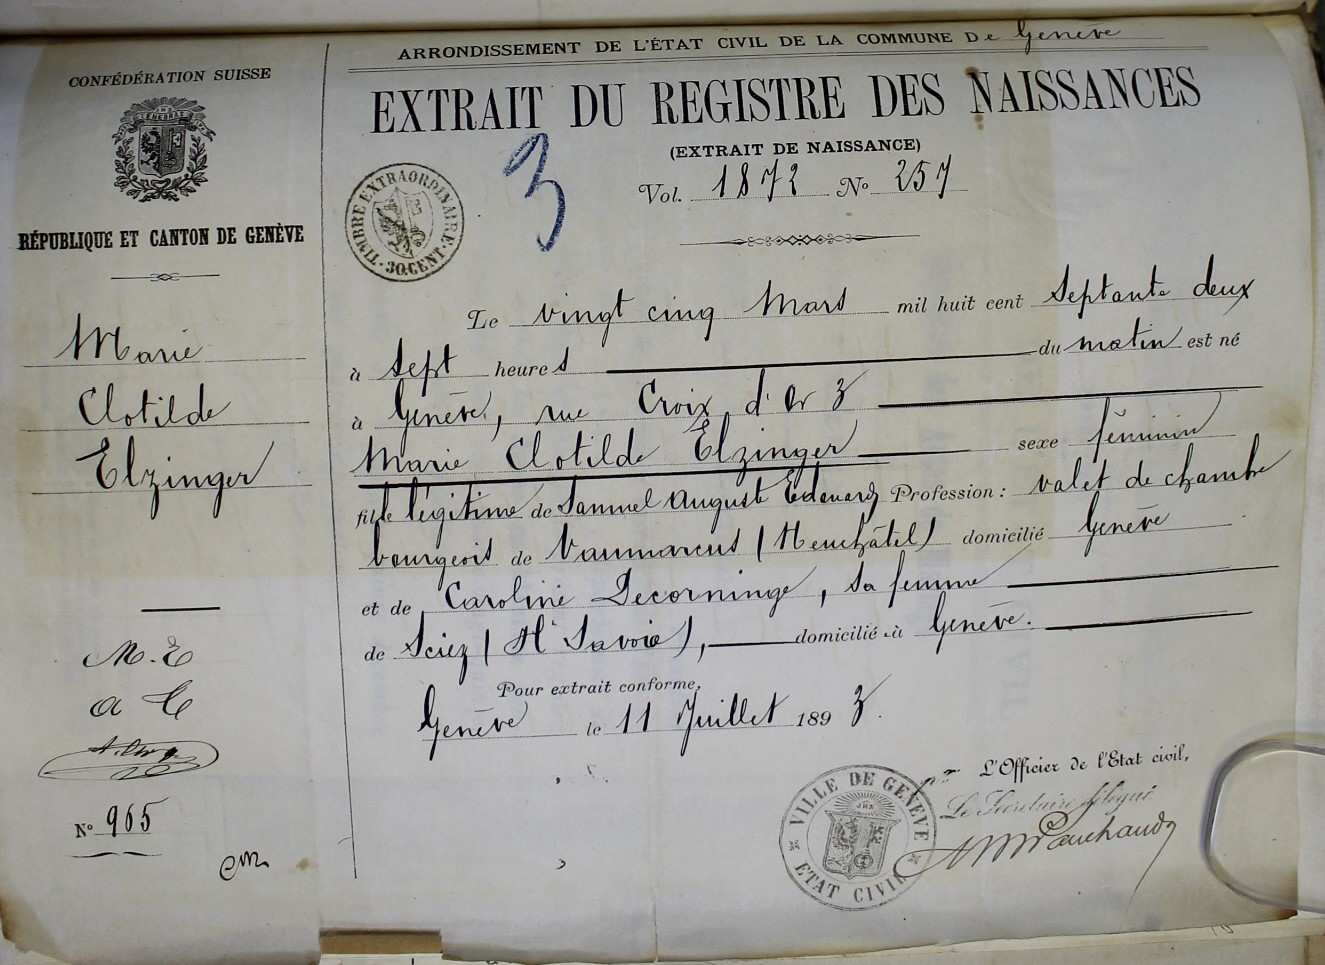 ARRONDISSEMENT DE L'ÉTAT CIVIL DE LA COMMUNE De Genève
CONFÉDÉRATION SUISSE
RÉPUBLIQUE ET CANTON DE GENÈVE
Marie
Clotilde
Elzinger
M. E
a C
Nº 965
EXTRAIT DU REGISTRE DES NAISSANCES
(EXTRAIT DE NAISSANCE)
Vol. 1872 Nº 257
TIMBRE EXTRAORDINAIRE
30 CENT.
3
Le vingt cinq Mars mil huit cent Septante deux
à Sept heures du matin est né
à Genève, rue Croix d'Or 3
Marie Clotilde Elzinger sexe féminin
fille légitime de Samuel Auguste Edouard Profession: valet de chambre
bourgeois de Vaumarcus (Neuchâtel) domicilié Genève
et de Caroline Decorninge, sa femme
de Sciez (Hte Savoie), domicilié à Genève.
Pour extrait conforme,
Genève le 11 Juillet 1893.
L'Officier de l'Etat civil,
Le Secrétaire délégué
VILLE DE GENÈVE
ETAT CIVIL